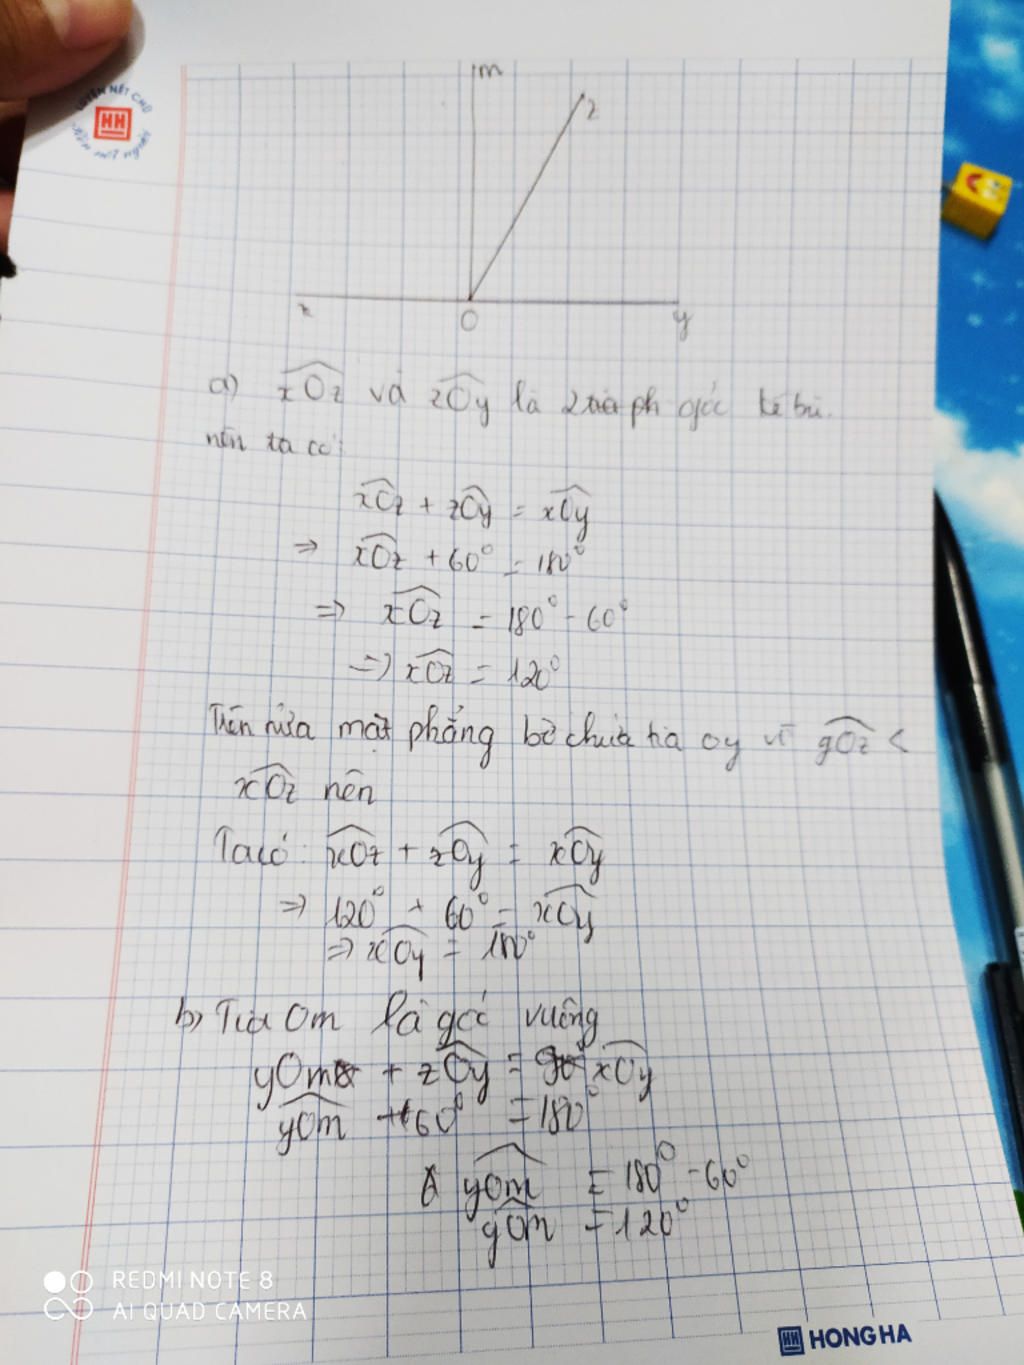 LUYỆN NÉT CHỮ
HH
m
z
x
O
y
a) xOz và zOy là 2 góc kề bù.
nên ta có:
xOz + zOy = xOy
⇒ xOz + 60° = 180°
⇒ xOz = 180° - 60°
⇒ xOz = 120°
Trên nửa mặt phẳng bờ chứa tia oy vì yOz <
xOz nên
Ta có: xOz + zOy = xOy
⇒ 120° + 60° = xOy
⇒ xOy = 180°
b) Tia Om là góc vuông
yOm + zOy = xOy
yOm + 60° = 180°
yOm = 180° - 60°
yOm = 120°
REDMI NOTE 8
AI QUAD CAMERA
HH HONG HA